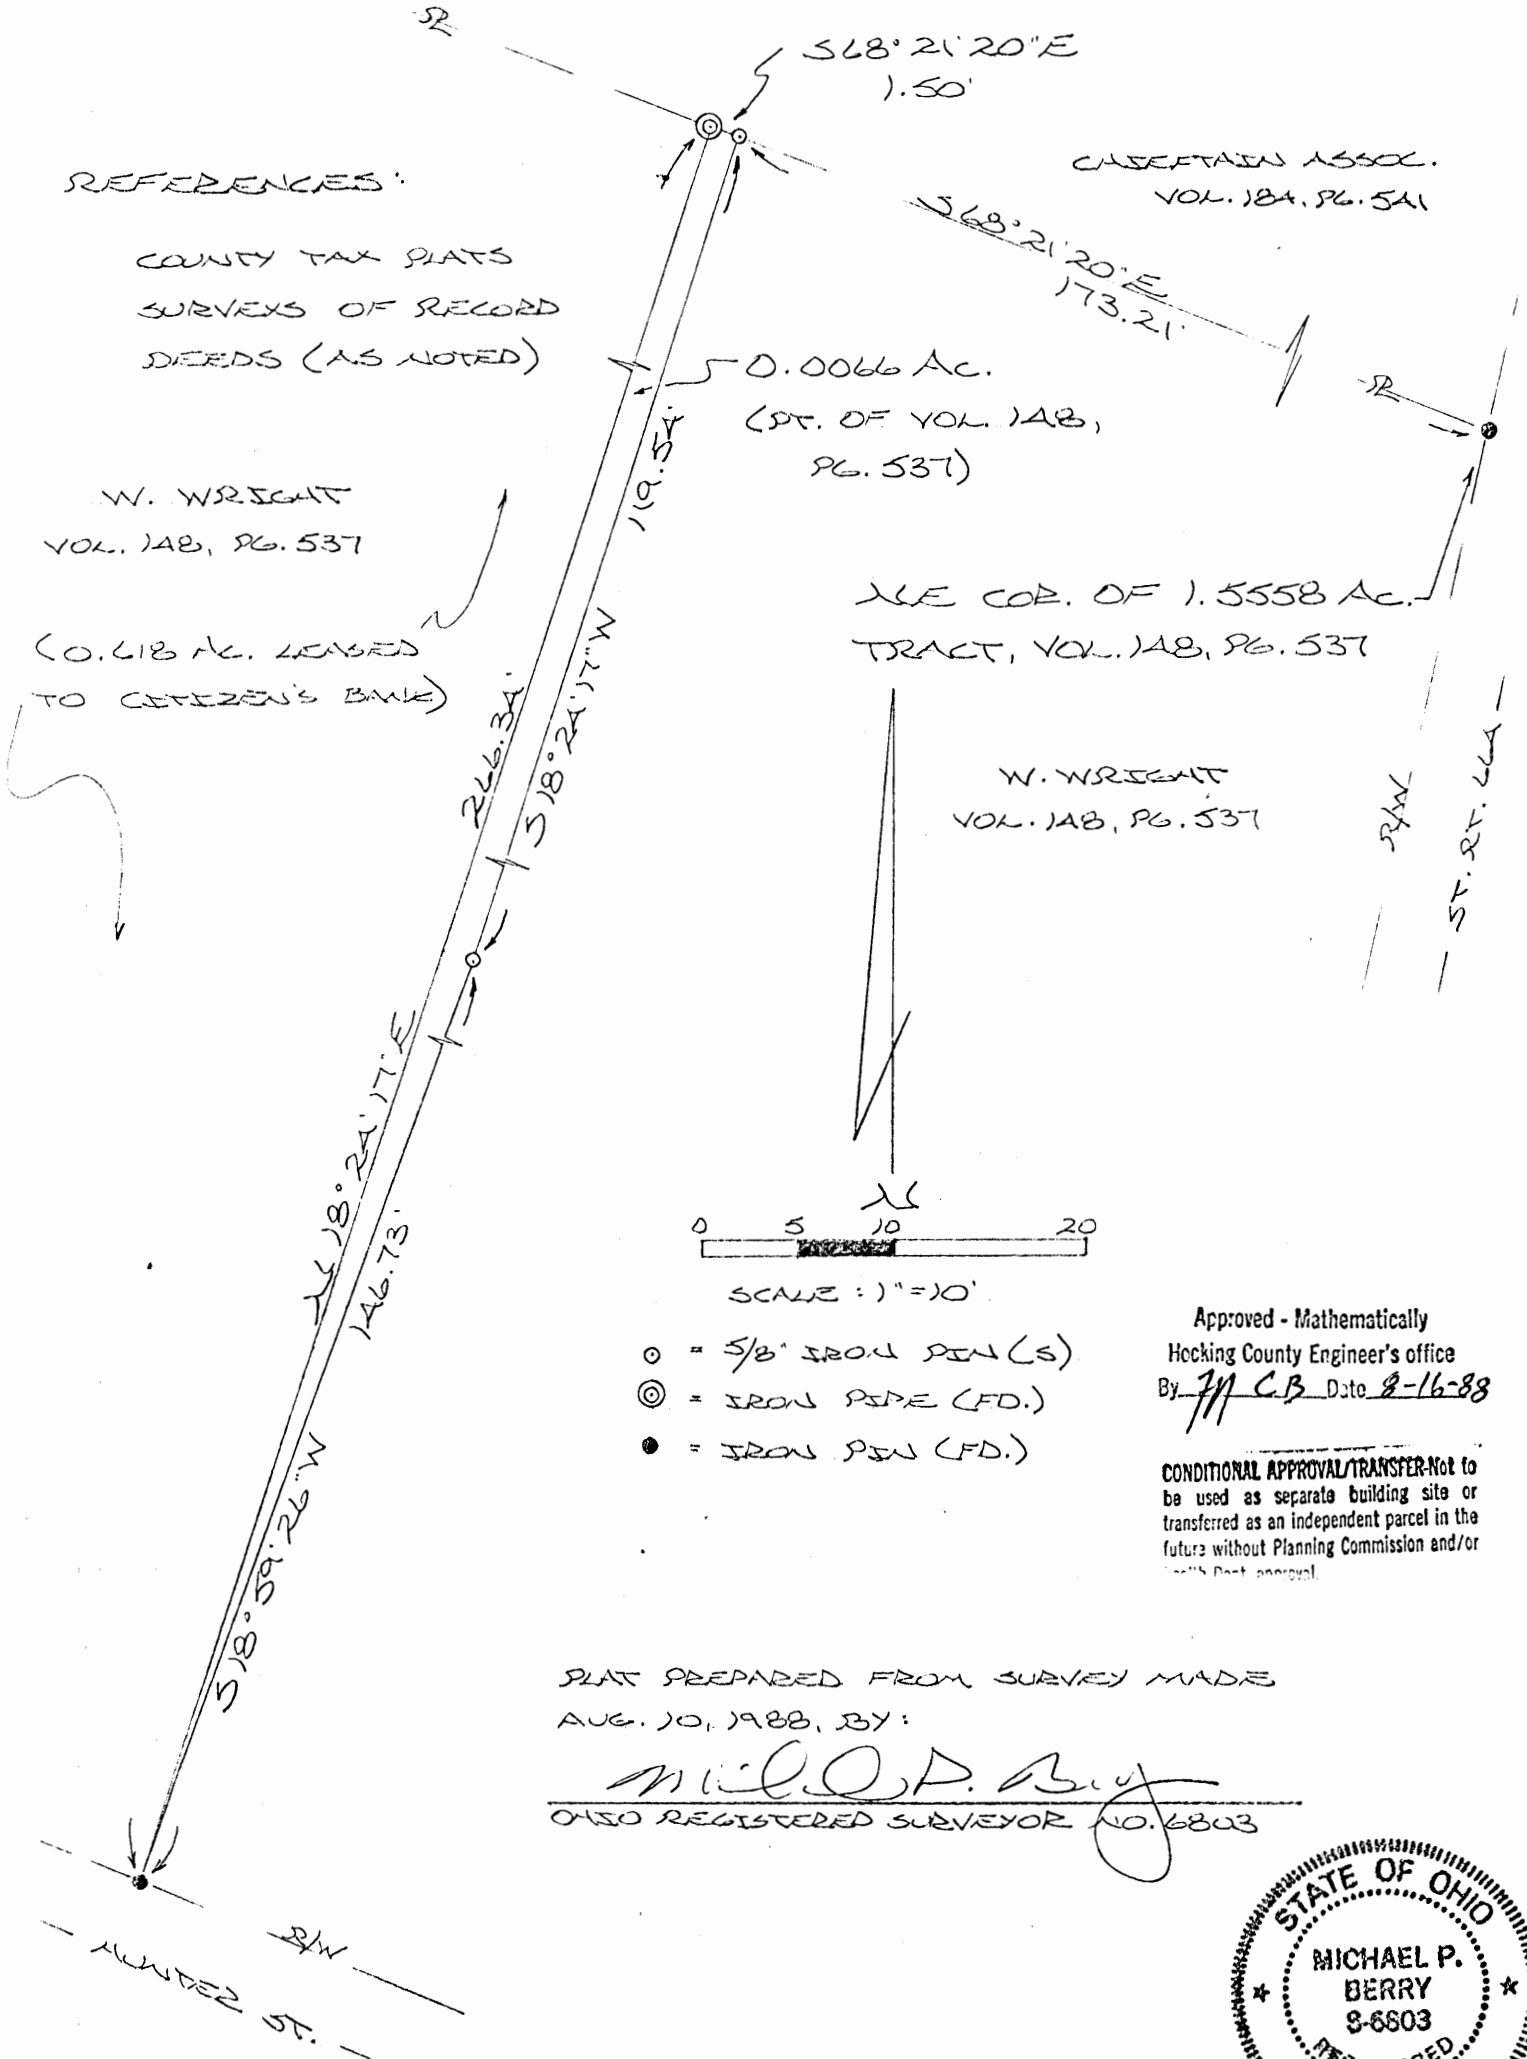 PL
S68°21'20"E
1.50'
REFERENCES:
COUNTY TAX PLATS
SURVEYS OF RECORD
DEEDS (AS NOTED)
CHIEFTAIN ASSOC.
VOL. 184, PG. 541
S68°21'20"E
173.21'
PL
0.0066 AC.
(PT. OF VOL. 148,
PG. 537)
119.54'
W. WRIGHT
VOL. 148, PG. 537
(0.618 AC. LEASED
TO CITIZEN'S BANK)
NE COR. OF 1.5558 AC.
TRACT, VOL. 148, PG. 537
266.34'
S18°24'17"W
W. WRIGHT
VOL. 148, PG. 537
R/W
ST. RT. 664
N18°24'17"E
146.73'
S18°59'26"W
N
0 5 10 20
SCALE: 1"=10'
= 5/8" IRON PIN (S)
= IRON PIPE (FD.)
= IRON PIN (FD.)
Approved - Mathematically
Hocking County Engineer's office
By CB Date 8-16-88
CONDITIONAL APPROVAL/TRANSFER-Not to
be used as separate building site or
transferred as an independent parcel in the
future without Planning Commission and/or
Dept. approval.
PLAT PREPARED FROM SURVEY MADE
AUG. 10, 1988, BY:
Michael P. Berry
OHIO REGISTERED SURVEYOR NO. 6803
R/W
HUNTER ST.
STATE OF OHIO
MICHAEL P.
BERRY
S-6803